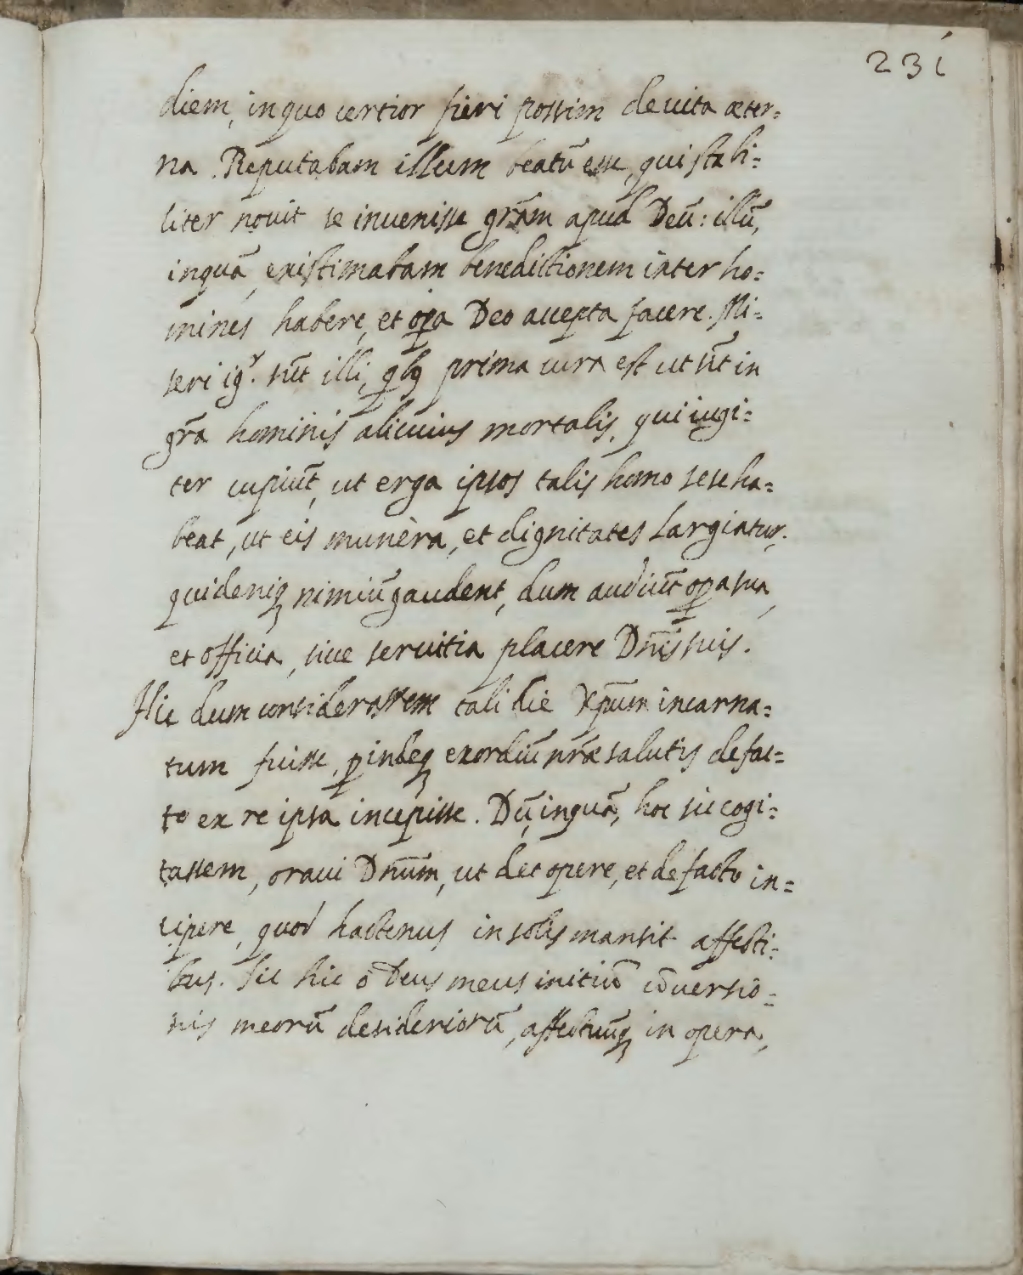 231
diem, in quo certior fieri possim de vita æter=
na. Reputabam illum beatū esse, qui stabi=
liter novit se invenisse grãm apud Deū: illū,
inquā, existimabam benedictionem inter ho=
mines habere, et opa Deo accepta facere. Mi=
seri igr. sūt illi, qbq prima cura est ut sīt in
grã hominis alicuius mortalis, qui iugi=
ter cupiūt, ut erga ipsos talis homo sese ha=
beat, ut eis munera, et dignitates largiatur,
qui deniq nimiū gaudent, dum audiūt opa sua,
et officia, sive servitia placere Dnis suis.
Hic dum considerassem tali die Xpum incarna=
tum fuisse, pindeq exordiū nræ salutis de fac=
to ex re ipsa incepisse. Dū, inquā, hoc sic cogi=
tassem, oravi Dnum, ut det opere, et de facto in=
cipere, quod hactenus in solis mansit affecti=
bus. Sit hic o Deus meus initiū cōversio=
nis meorū desideriorū, affectuūq in opera,